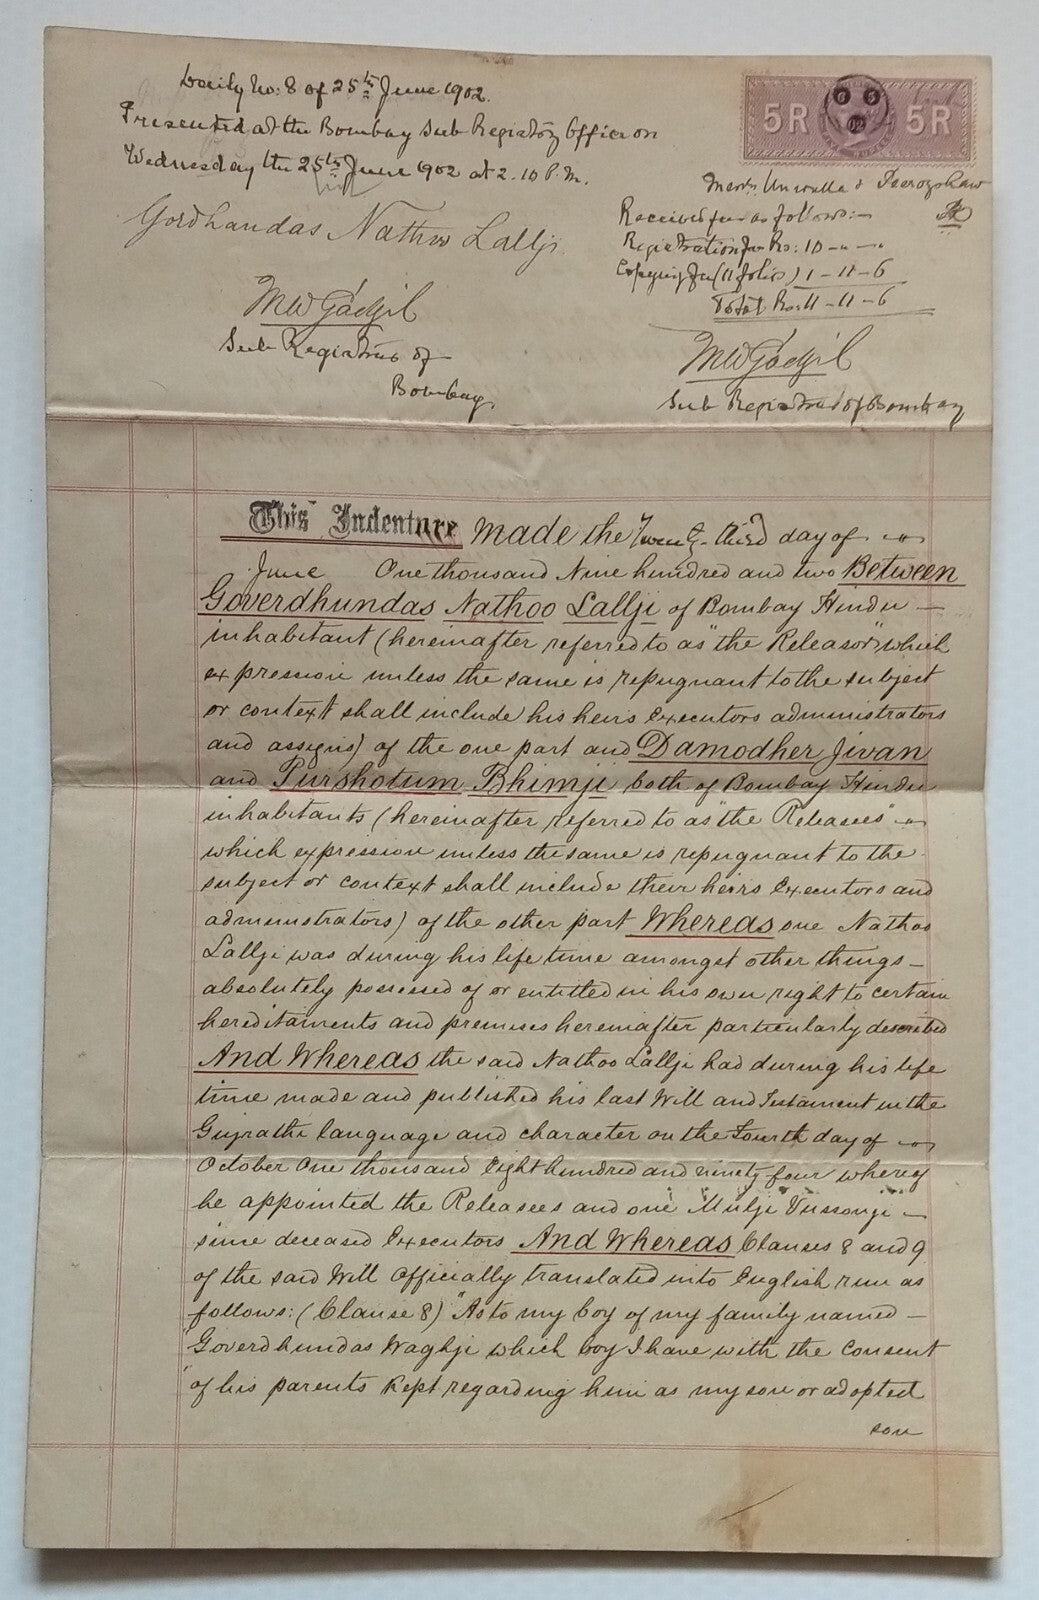 Daily No: 8 of 25th June 1902.
Presented at the Bombay Sub Registry Office on
Wednesday the 25th June 1902 at 2.10 P.M.
Gordhandas Nathoo Lallji
M W Gadgil
Sub Registrar of
Bombay
5R 5R
Messrs Unwalla & Feerozshaw
Received fees as follows:-
Registration fee Rs: 10 - " - "
Copying fee (11 folios) 1 - 11 - 6
Total Rs: 11 - 11 - 6
M W Gadgil
Sub Registrar of Bombay
This Indenture made the Twenty-third day of
June One thousand Nine hundred and two Between
Goverdhundas Nathoo Lallji of Bombay Hindu
inhabitant (hereinafter referred to as "the Releasor" which
expression unless the same is repugnant to the subject
or context shall include his heirs Executors administrators
and assigns) of the one part and Damodher Jivan
and Purshotum Bhimji both of Bombay Hindu
inhabitants (hereinafter referred to as "the Releasees"
which expression unless the same is repugnant to the
subject or context shall include their heirs Executors and
administrators) of the other part Whereas one Nathoo
Lallji was during his life time amongst other things
absolutely possessed of or entitled in his own right to certain
hereditaments and premises hereinafter particularly described
And Whereas the said Nathoo Lallji had during his life
time made and published his last Will and Testament in the
Gujrathi language and character on the Fourth day of
October One thousand Eight hundred and ninety four whereby
he appointed the Releasees and one Mulji Vussonji
since deceased Executors And Whereas Clauses 8 and 9
of the said Will Officially translated into English run as
follows: (Clause 8) "As to my boy of my family named
"Goverdhundas Waghji which boy I have with the consent
"of his parents kept regarding him as my son or adopted
son